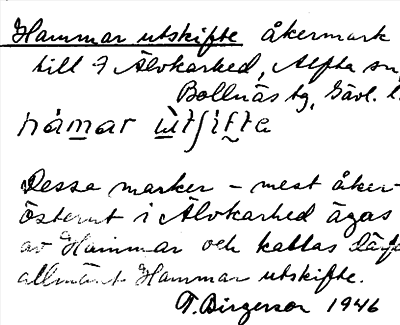 Hammar utskifte åkermark
till 7 Älvkarhed, Alfta sn,
Bollnäs tg, Gävl. l.
hámar ùtʃifta
Dessa marker – mest åker-
österut i Älvkarhed ägas
av Hammar och kallas därf
allmänt Hammar utskifte.
T. Birgerson 1946